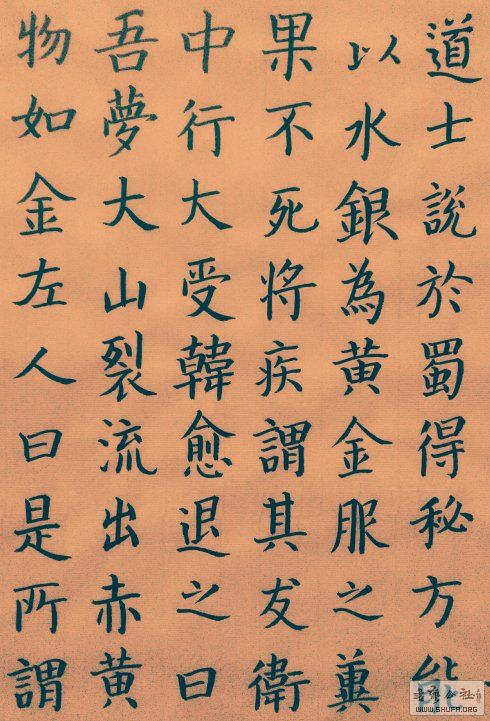 道士說於蜀得秘方能
以水銀為黃金服之冀
果不死將疾謂其友衛
中行大受韓愈退之曰
吾夢大山裂流出赤黃
物如金左人曰是所謂
WWW.SHUFA.ORG